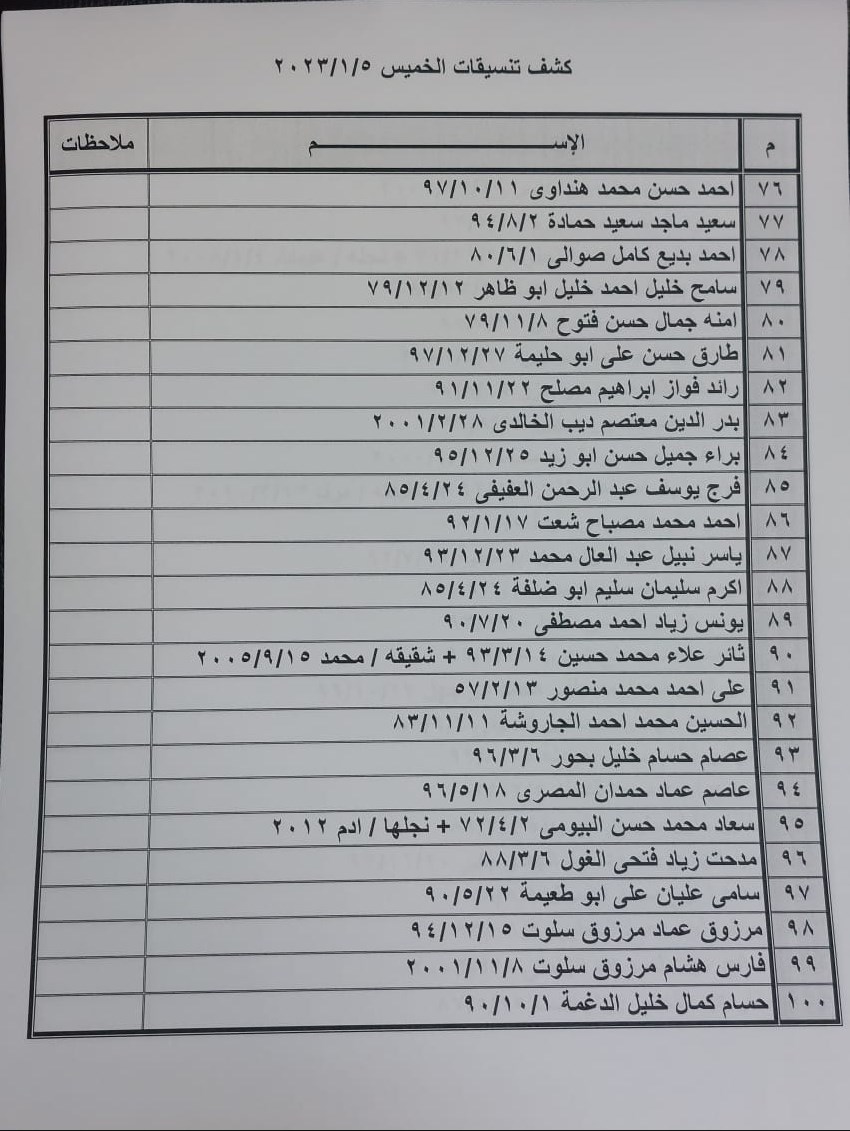 كشف تنسيقات الخميس ٢٠٢٣/١/٥
م الإســـــــــــــــــم ملاحظات
٧٦ احمد حسن محمد هنداوى ٩٧/١٠/١١
٧٧ سعيد ماجد سعيد حمادة ٩٤/٨/٢
٧٨ احمد بديع كامل صوالى ٨٠/٦/١
٧٩ سامح خليل احمد خليل ابو ظاهر ٧٩/١٢/١٢
٨٠ امنه جمال حسن فتوح ٧٩/١١/٨
٨١ طارق حسن على ابو حليمة ٩٧/١٢/٢٧
٨٢ رائد فواز ابراهيم مصلح ٩١/١١/٢٢
٨٣ بدر الدين معتصم ديب الخالدى ٢٠٠١/٢/٢٨
٨٤ براء جميل حسن ابو زيد ٩٥/١٢/٢٥
٨٥ فرج يوسف عبد الرحمن العفيفى ٨٥/٤/٢٤
٨٦ احمد محمد مصباح شعت ٩٢/١/١٧
٨٧ ياسر نبيل عبد العال محمد ٩٣/١٢/٢٣
٨٨ اكرم سليمان سليم ابو ضلفة ٨٥/٤/٢٤
٨٩ يونس زياد احمد مصطفى ٩٠/٧/٢٠
٩٠ ثائر علاء محمد حسين ٩٣/٣/١٤ + شقيقه / محمد ٢٠٠٥/٩/١٥
٩١ على احمد محمد منصور ٥٧/٢/١٣
٩٢ الحسين محمد احمد الجاروشة ٨٣/١١/١١
٩٣ عصام حسام خليل بحور ٩٦/٣/٦
٩٤ عاصم عماد حمدان المصرى ٩٦/٥/١٨
٩٥ سعاد محمد حسن البيومى ٧٢/٤/٢ + نجلها / ادم ٢٠١٢
٩٦ مدحت زياد فتحى الغول ٨٨/٣/٦
٩٧ سامى عليان على ابو طعيمة ٩٠/٥/٢٢
٩٨ مرزوق عماد مرزوق سلوت ٩٤/١٢/١٥
٩٩ فارس هشام مرزوق سلوت ٢٠٠١/١١/٨
١٠٠ حسام كمال خليل الدغمة ٩٠/١٠/١